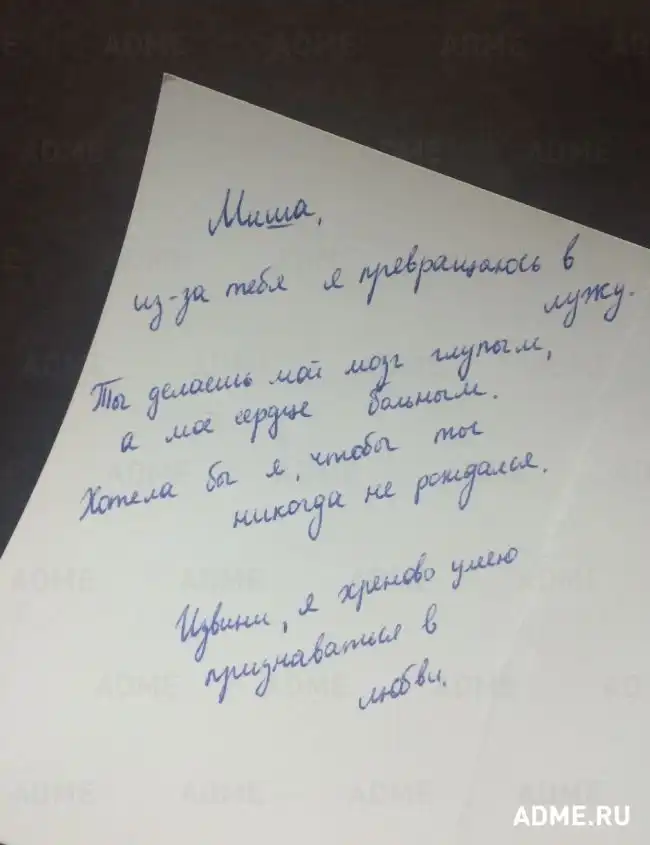 Миша,
из-за тебя я превращаюсь в
лужу.
Ты делаешь мой мозг глупым,
а мое сердце больным.
Хотела бы я, чтобы ты
никогда не рождался.
Извини, я хреново умею
признаваться в
любви.
ADME.RU